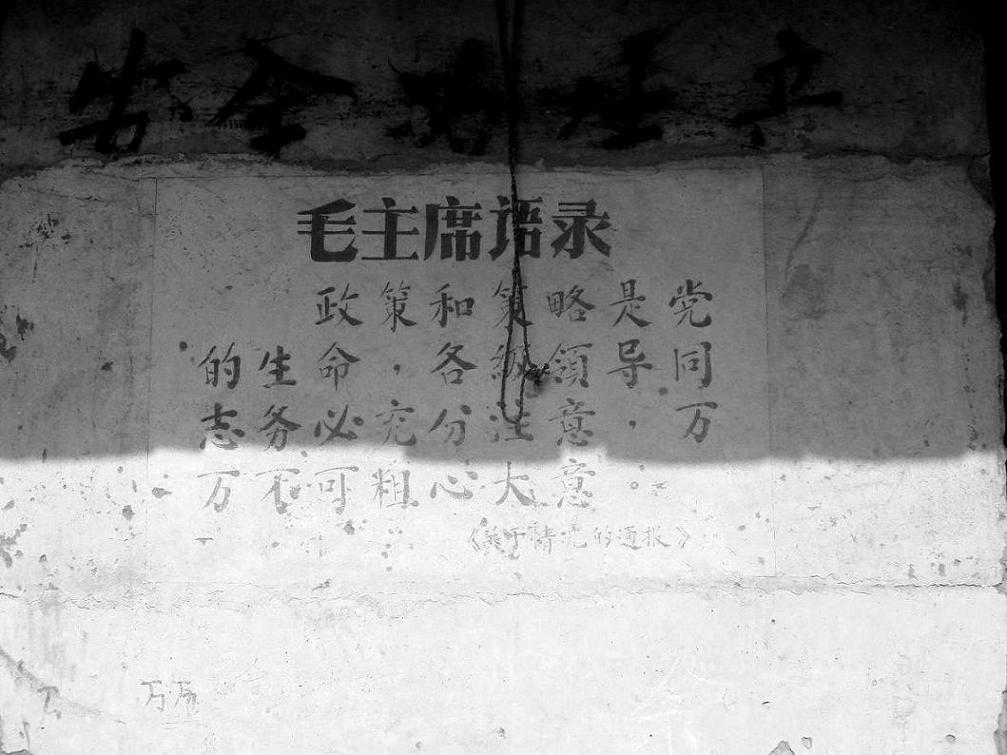 安全
毛主席语录
政策和策略是党
的生命，各级领导同
志务必充分注意，万
万不可粗心大意。
《关于情况的通报》